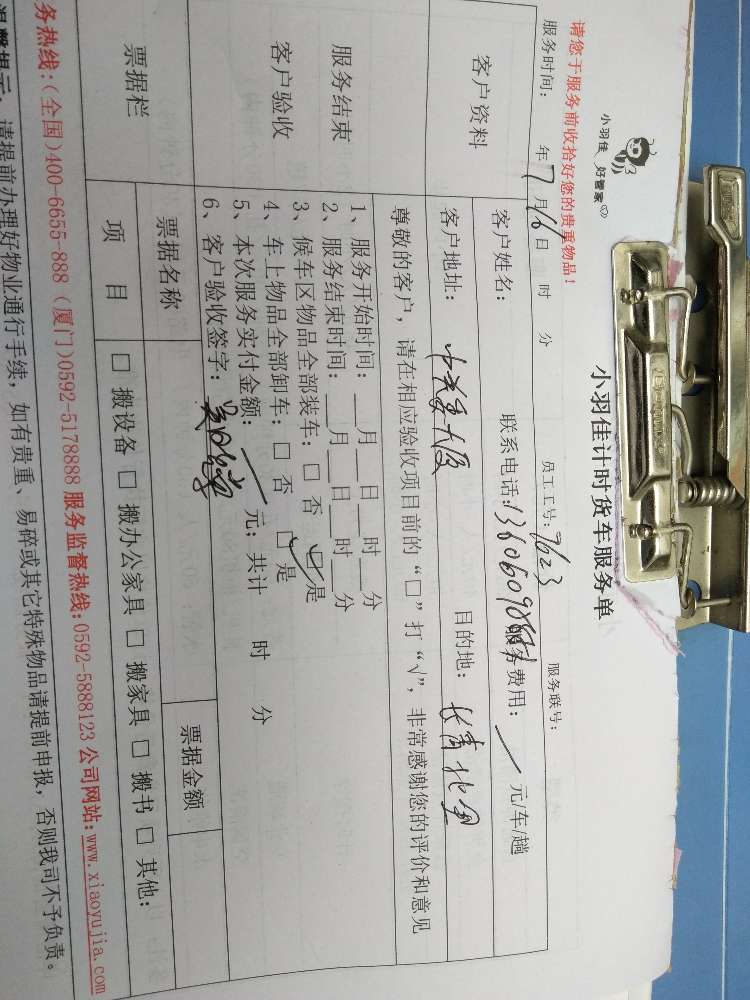 小羽佳 好管家
小羽佳计时货车服务单
请您于服务前收拾好您的贵重物品！
服务时间： 年 7 月 16 日 时 分 员工工号：7623 服务联号：
客户资料
客户姓名： 联系电话： 服务费用： 元/车/趟
客户地址： 目的地：
尊敬的客户，请在相应验收项目前的“□”打“√”，非常感谢您的评价和意见
服务结束
客户验收
1、服务开始时间：__月__日__时__分
2、服务结束时间：__月__日__时__分
3、候车区物品全部装车：□ 否 ☑ 是
4、车上物品全部卸车：□ 否 ☑ 是
5、本次服务实付金额： 元；共计 时 分
6、客户验收签字：
票据栏
票据名称 票据金额
项 目 □ 搬设备 □ 搬办公家具 □ 搬家具 □ 搬书 □ 其他：
务热线：(全国)400-6655-888 (厦门)0592-5178888 服务监督热线:0592-5888123 公司网站:www.xiaoyujia.com
温馨提示：请提前办理好物业通行手续，如有贵重、易碎或其它特殊物品请提前申报，否则我司不予负责。